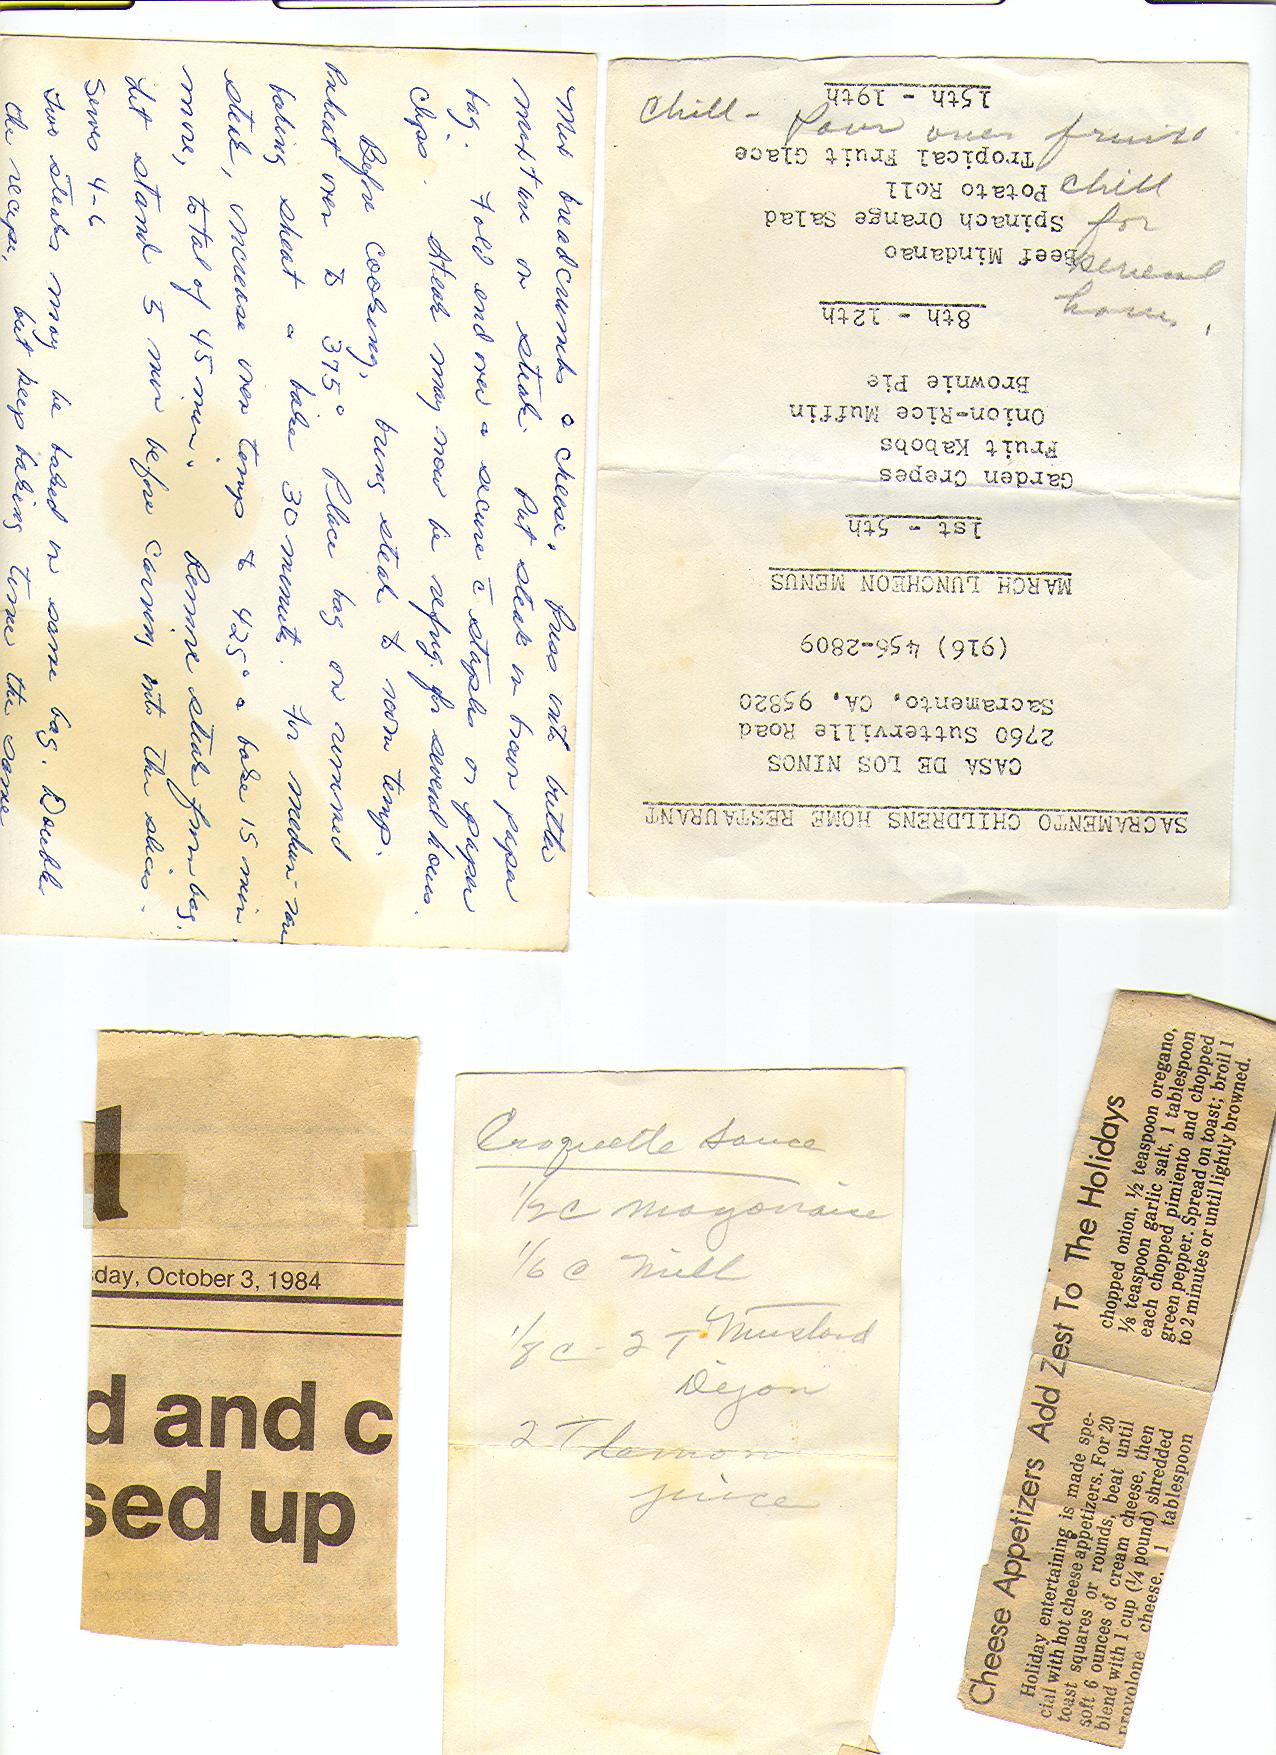 Mix breadcrumbs & cheese, press into butter
mixture on steak. Put steak in brown paper
bag. Fold end over & secure c̄ staples or paper
clips. Steak may now be refrig. for several hours.
Before cooking, bring steak to room temp.
Preheat oven to 375° Place bag on rimmed
baking sheet & bake 30 minutes. For medium-rare
steak, increase oven temp to 425° & bake 15 min
more, total of 45 min. Remove steak from bag.
Let stand 5 min before carving into thin slices.
Serves 4-6
Two steaks may be baked in same bag. Double
the recipe, but keep baking time the same
SACRAMENTO CHILDRENS HOME RESTAURANT
CASA DE LOS NINOS
2760 Sutterville Road
Sacramento, CA. 95820
(916) 456-2809
MARCH LUNCHEON MENUS
1st - 5th
Garden Crepes
Fruit Kabobs
Onion-Rice Muffin
Brownie Pie
8th - 12th
Beef Mindanao
Spinach Orange Salad
Potato Roll
Tropical Fruit Glace
15th - 19th
Chill - Pour over fruits
Chill
for
several
hours.
sday, October 3, 1984
d and c
sed up
Croquette Sauce
1/2 C Mayonaise
1/6 C Milk
1/8 C - 2 T Mustard
Dijon
2 T Lemon
juice
Cheese Appetizers Add Zest To The Holidays
Holiday entertaining is made spe-
cial with hot cheese appetizers. For 20
toast squares or rounds, beat until
soft 6 ounces of cream cheese, then
blend with 1 cup (¼ pound) shredded
provolone cheese, 1 tablespoon
chopped onion, ½ teaspoon oregano,
⅛ teaspoon garlic salt, 1 tablespoon
each chopped pimiento and chopped
green pepper. Spread on toast; broil 1
to 2 minutes or until lightly browned.